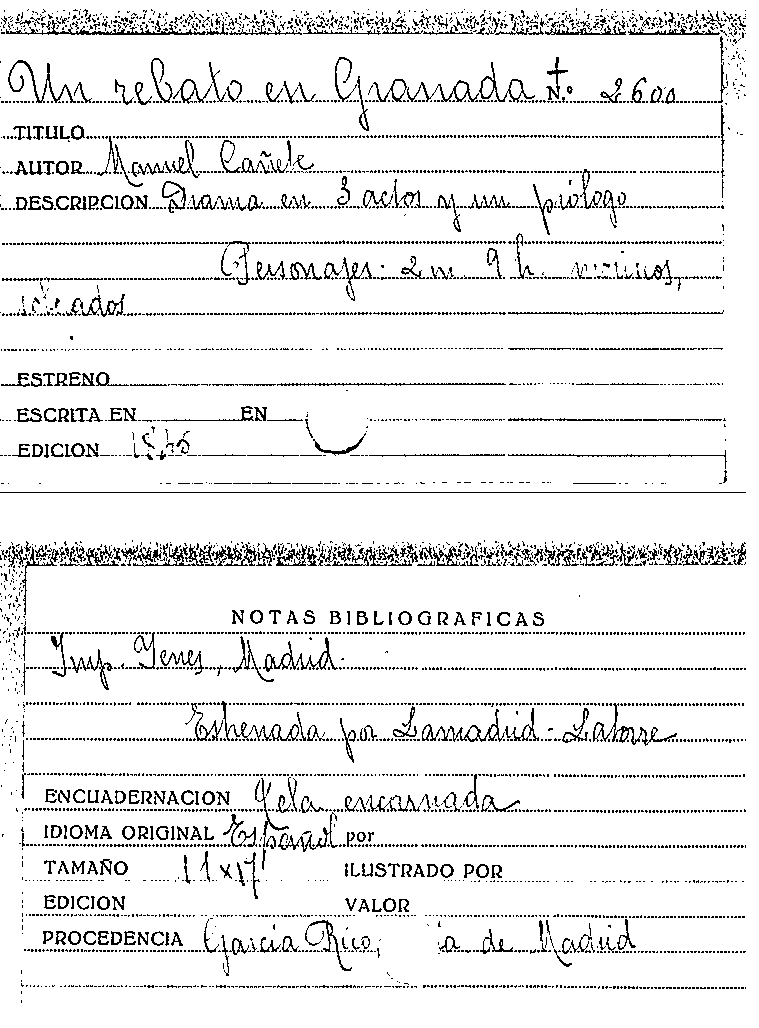 Un rebato en Granada N.º 2600
TITULO
AUTOR Manuel Cañete
DESCRIPCION Drama en 3 actos y un prólogo
Personajes: 2 m 9 h. marinos,
soldados
ESTRENO
ESCRITA EN EN
EDICION
NOTAS BIBLIOGRAFICAS
Imp. Yenes, Madrid.
Estrenada por Lamadrid - Latorre
ENCUADERNACION Tela encarnada
IDIOMA ORIGINAL Español por
TAMAÑO 11x17 ILUSTRADO POR
EDICION VALOR
PROCEDENCIA García Rico, de Madrid